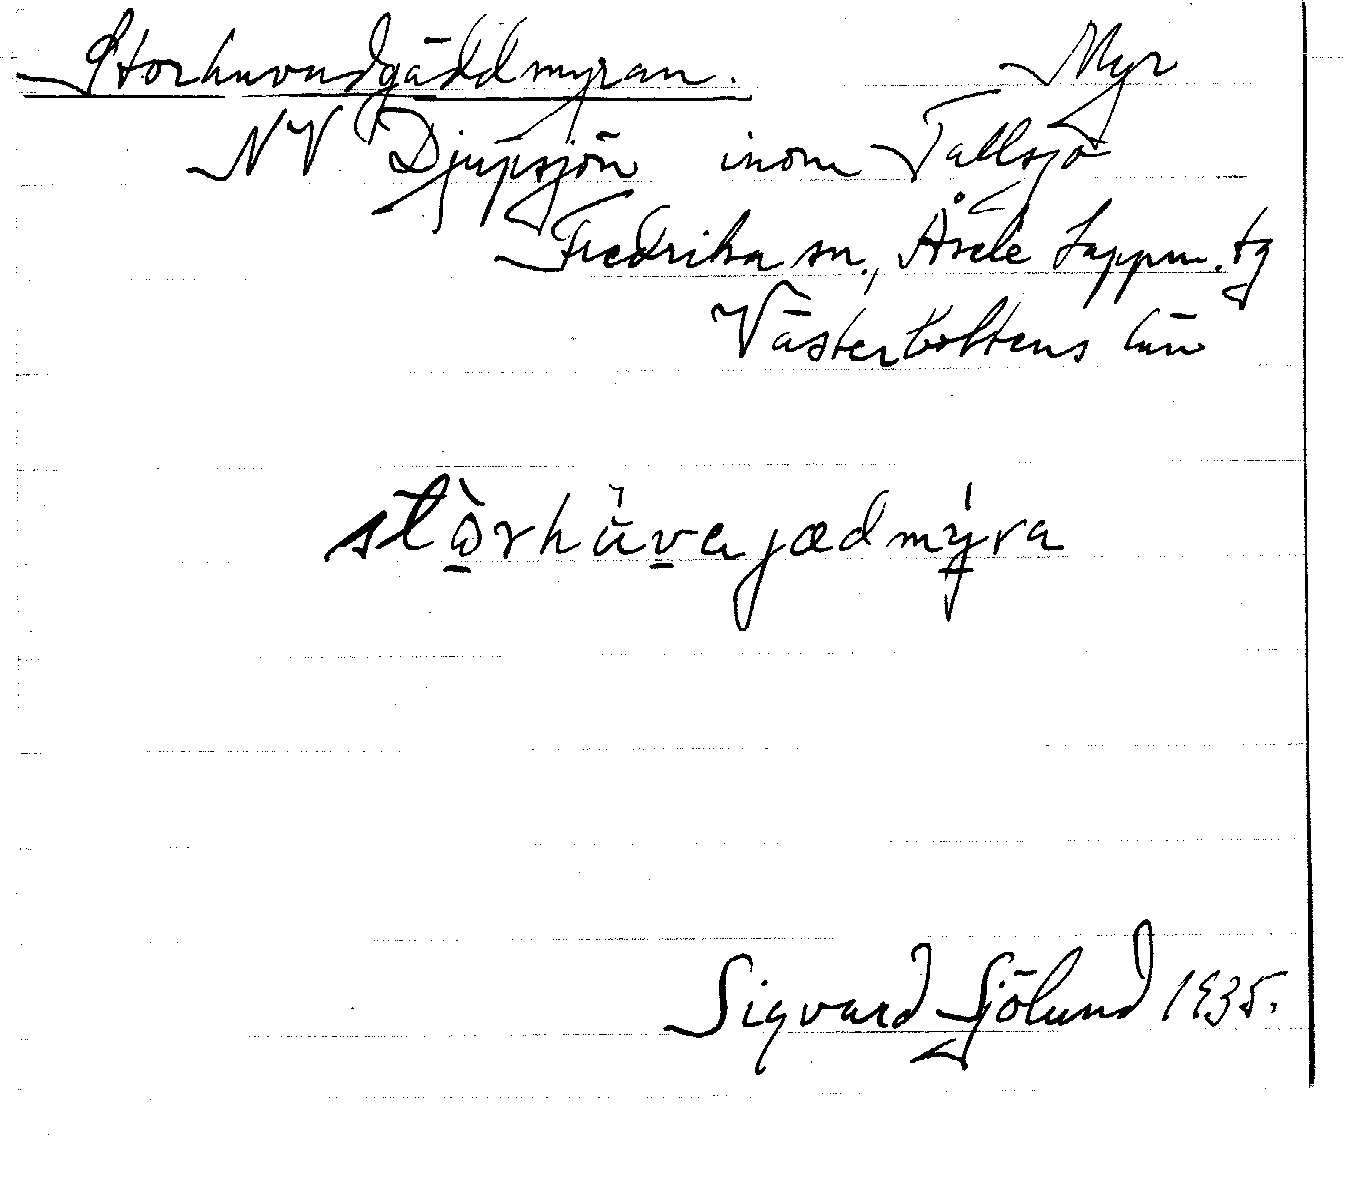 Storhuvudgäddmyran. Myr
NV Djupsjön inom Tallsjö
Fredrika sn., Åsele Lappm. tg
Västerbottens län
stòrhǜvajædmýra
Sigvard Sjölund 1935.